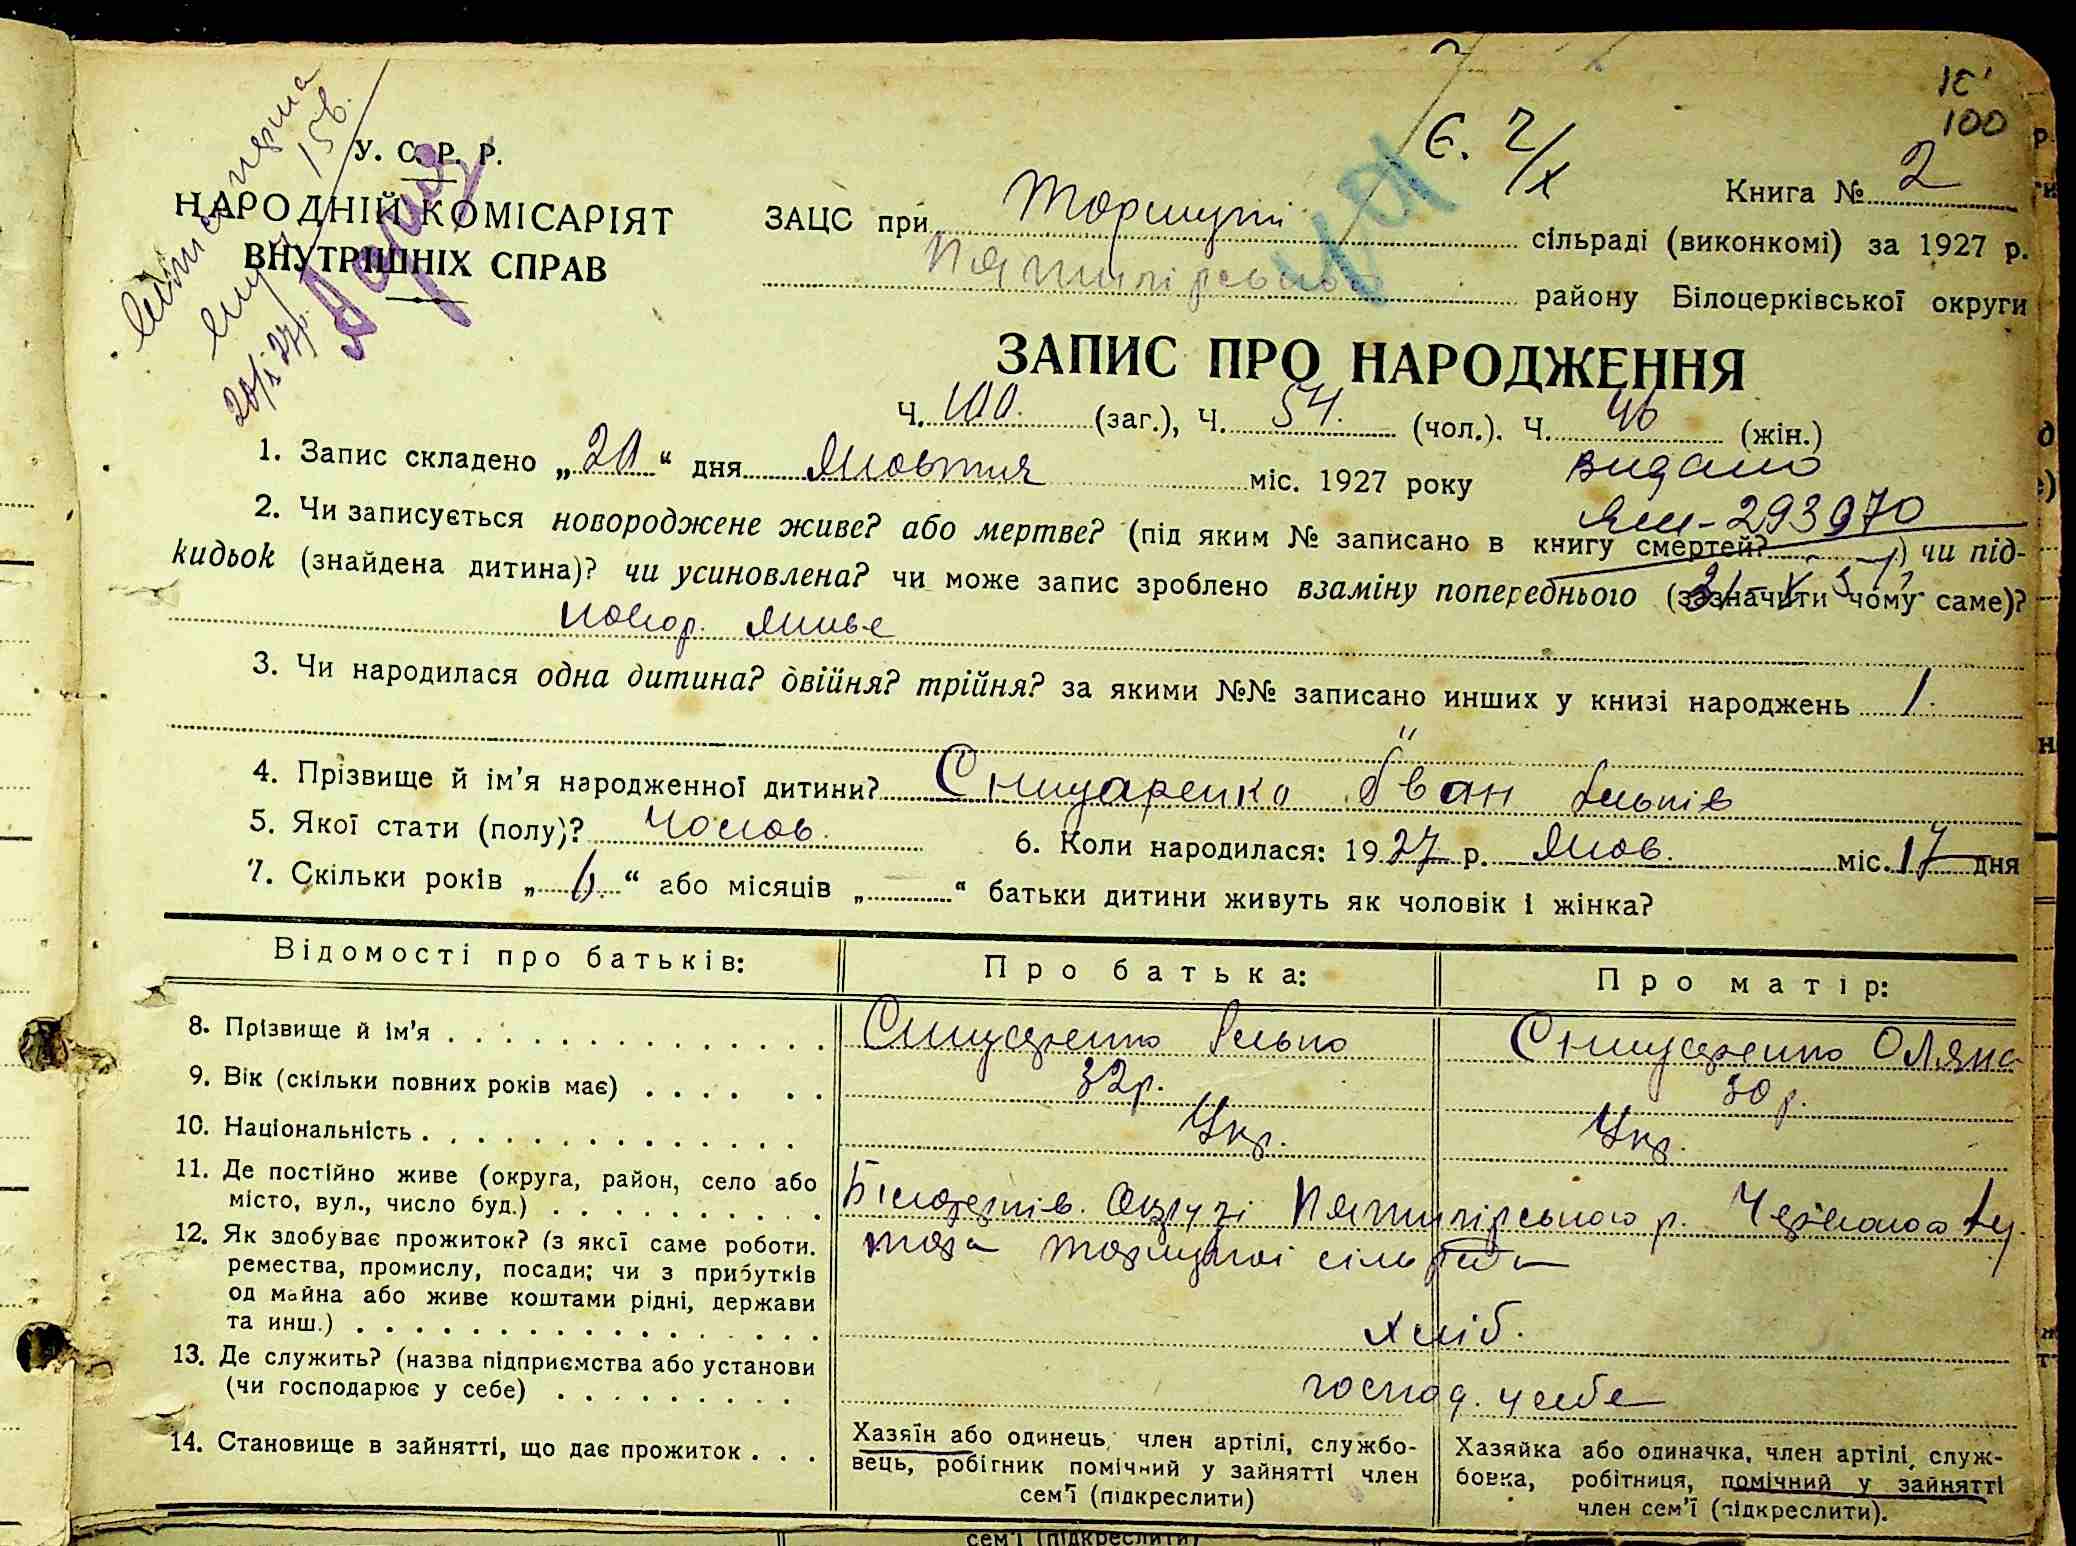 100
У. С. Р. Р.
НАРОДНІЙ КОМІСАРІЯТ
ВНУТРІШНІХ СПРАВ
Є. 2/X
Книга № 2
ЗАЦС при Торчицькі сільраді (виконкомі) за 1927 р.
П'ятигірського району Білоцерківської округи
ЗАПИС ПРО НАРОДЖЕННЯ
Ч. 100. (заг.), Ч. 54. (чол.). Ч. 46 (жін.)
1. Запис складено „20“ дня Жовтня міс. 1927 року
видано
2. Чи записується новороджене живе? або мертве? (під яким № записано в книгу смертей?) чи під-
293970
кидьок (знайдена дитина)? чи усиновлена? чи може запис зроблено взаміну попереднього (зазначити чому саме)?
новор. живе
3. Чи народилася одна дитина? двійня? трійня? за якими №№ записано инших у книзі народжень 1.
4. Прізвище й ім'я народженної дитини? Сницаренко Іван Ільків
5. Якої стати (полу)? чолов. 6. Коли народилася: 1927 р. Жов. міс. 17 дня
7. Скільки років „6.“ або місяців „“ батьки дитини живуть як чоловік і жінка?
Відомості про батьків: Про батька: Про матір:
8. Прізвище й ім'я Сницаренко Ілько Сницаренко Оляна
9. Вік (скільки повних років має) 32р. 30 р.
10. Національність Укр. Укр.
11. Де постійно живе (округа, район, село або
місто, вул., число буд.) Білоцерків. Округі П'ятигірського р.
12. Як здобуває прожиток? (з якої саме роботи.
ремества, промислу, посади; чи з прибутків
од майна або живе коштами рідні, держави
та инш.) хліб.
13. Де служить? (назва підприємства або установи
(чи господарює у себе) господ. у себе
14. Становище в зайнятті, що дає прожиток
Хазяїн або одинець, член артілі, службо-
вець, робітник помічний у зайнятті член
сем'ї (підкреслити)
Хазяйка або одиначка, член артілі, служ-
бовка, робітниця, помічний у зайнятті
член сем'ї (підкреслити).
сем'ї (підкреслити)